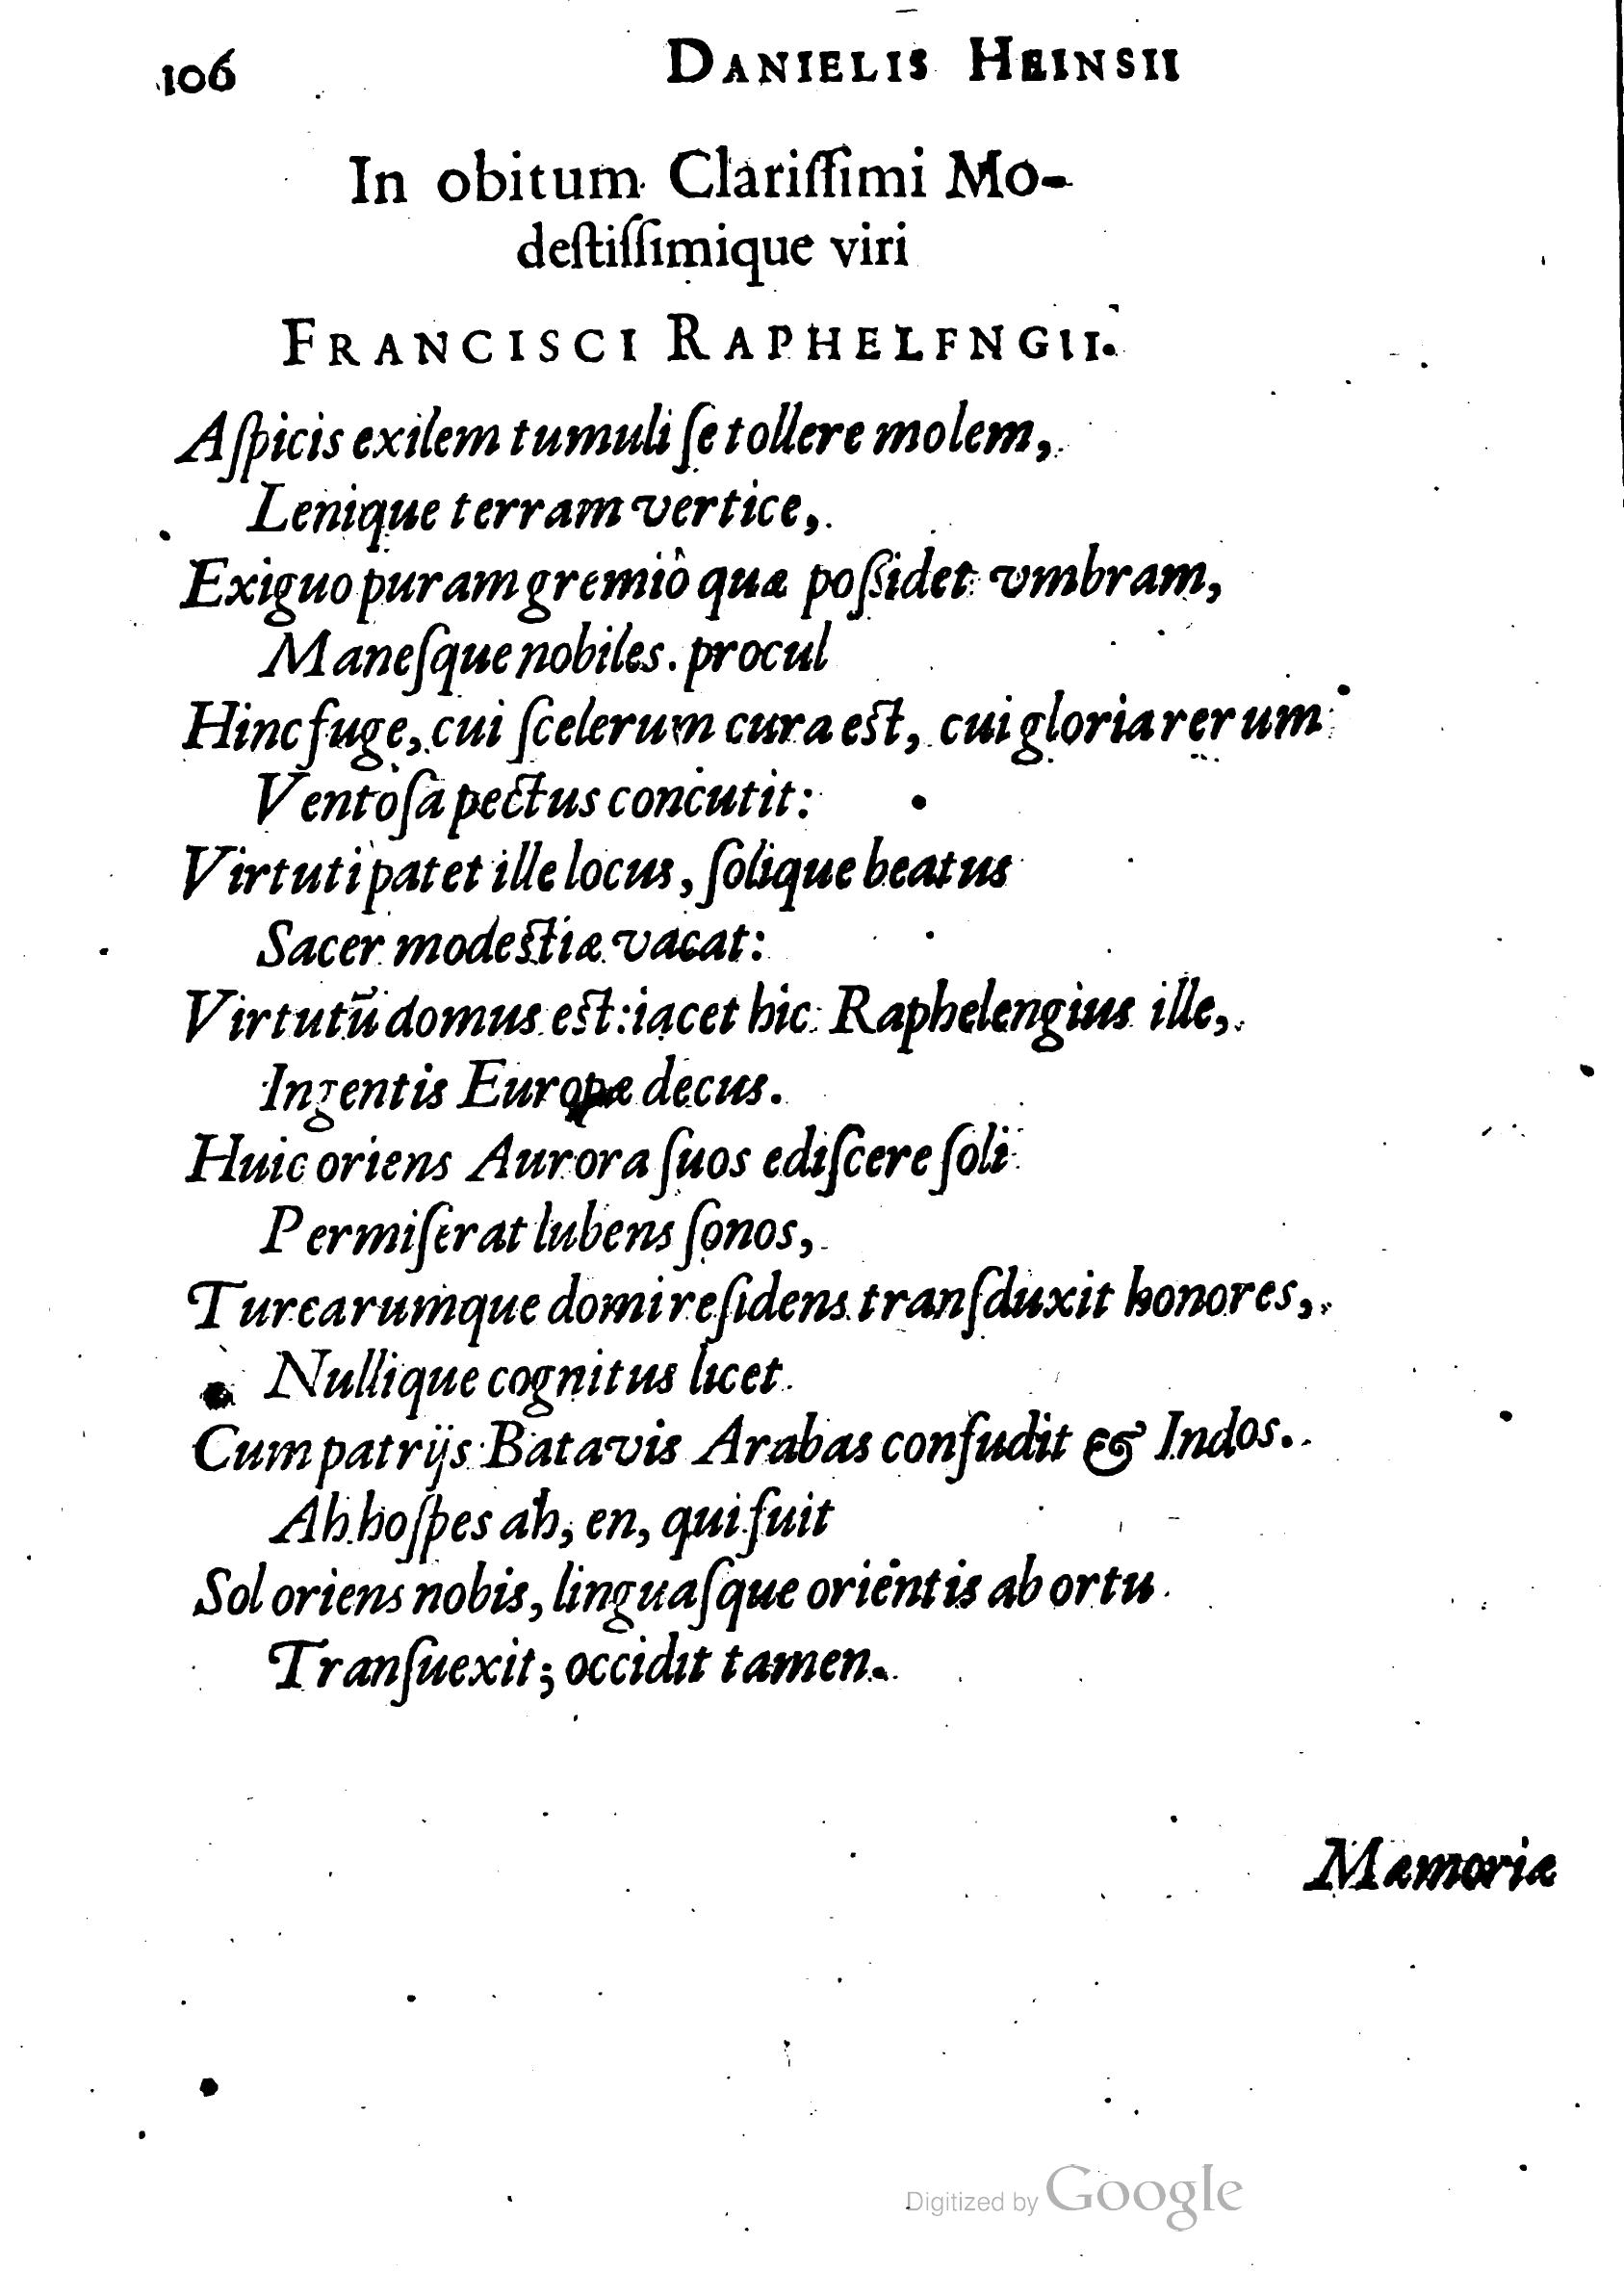 106 DANIELIS HEINSII
In obitum Clariſſimi Mo-
deſtiſſimique viri
FRANCISCI RAPHELFNGII.
Aſpicis exilem tumuli ſe tollere molem,
Lenique terram vertice,
Exiguo puram gremiô quæ poſſidet vmbram,
Maneſque nobiles. procul
Hinc fuge, cui ſcelerum cura eſt, cui gloria rerum
Ventoſa pectus concutit:
Virtuti patet ille locus, ſolique beatus
Sacer modeſtiæ vacat:
Virtutũ domus eſt: iacet hic Raphelengius ille,
Ingentis Europæ decus.
Huic oriens Aurora ſuos ediſcere ſoli
Permiſerat lubens ſonos,
Turcarumque domi reſidens tranſduxit honores,
Nullique cognitus licet
Cum patrijs Batavis Arabas confudit & Indos.
Ah hoſpes ah, en, qui fuit
Sol oriens nobis, linguaſque orientis ab ortu
Tranſuexit; occidit tamen.
Memoriæ
Digitized by Google